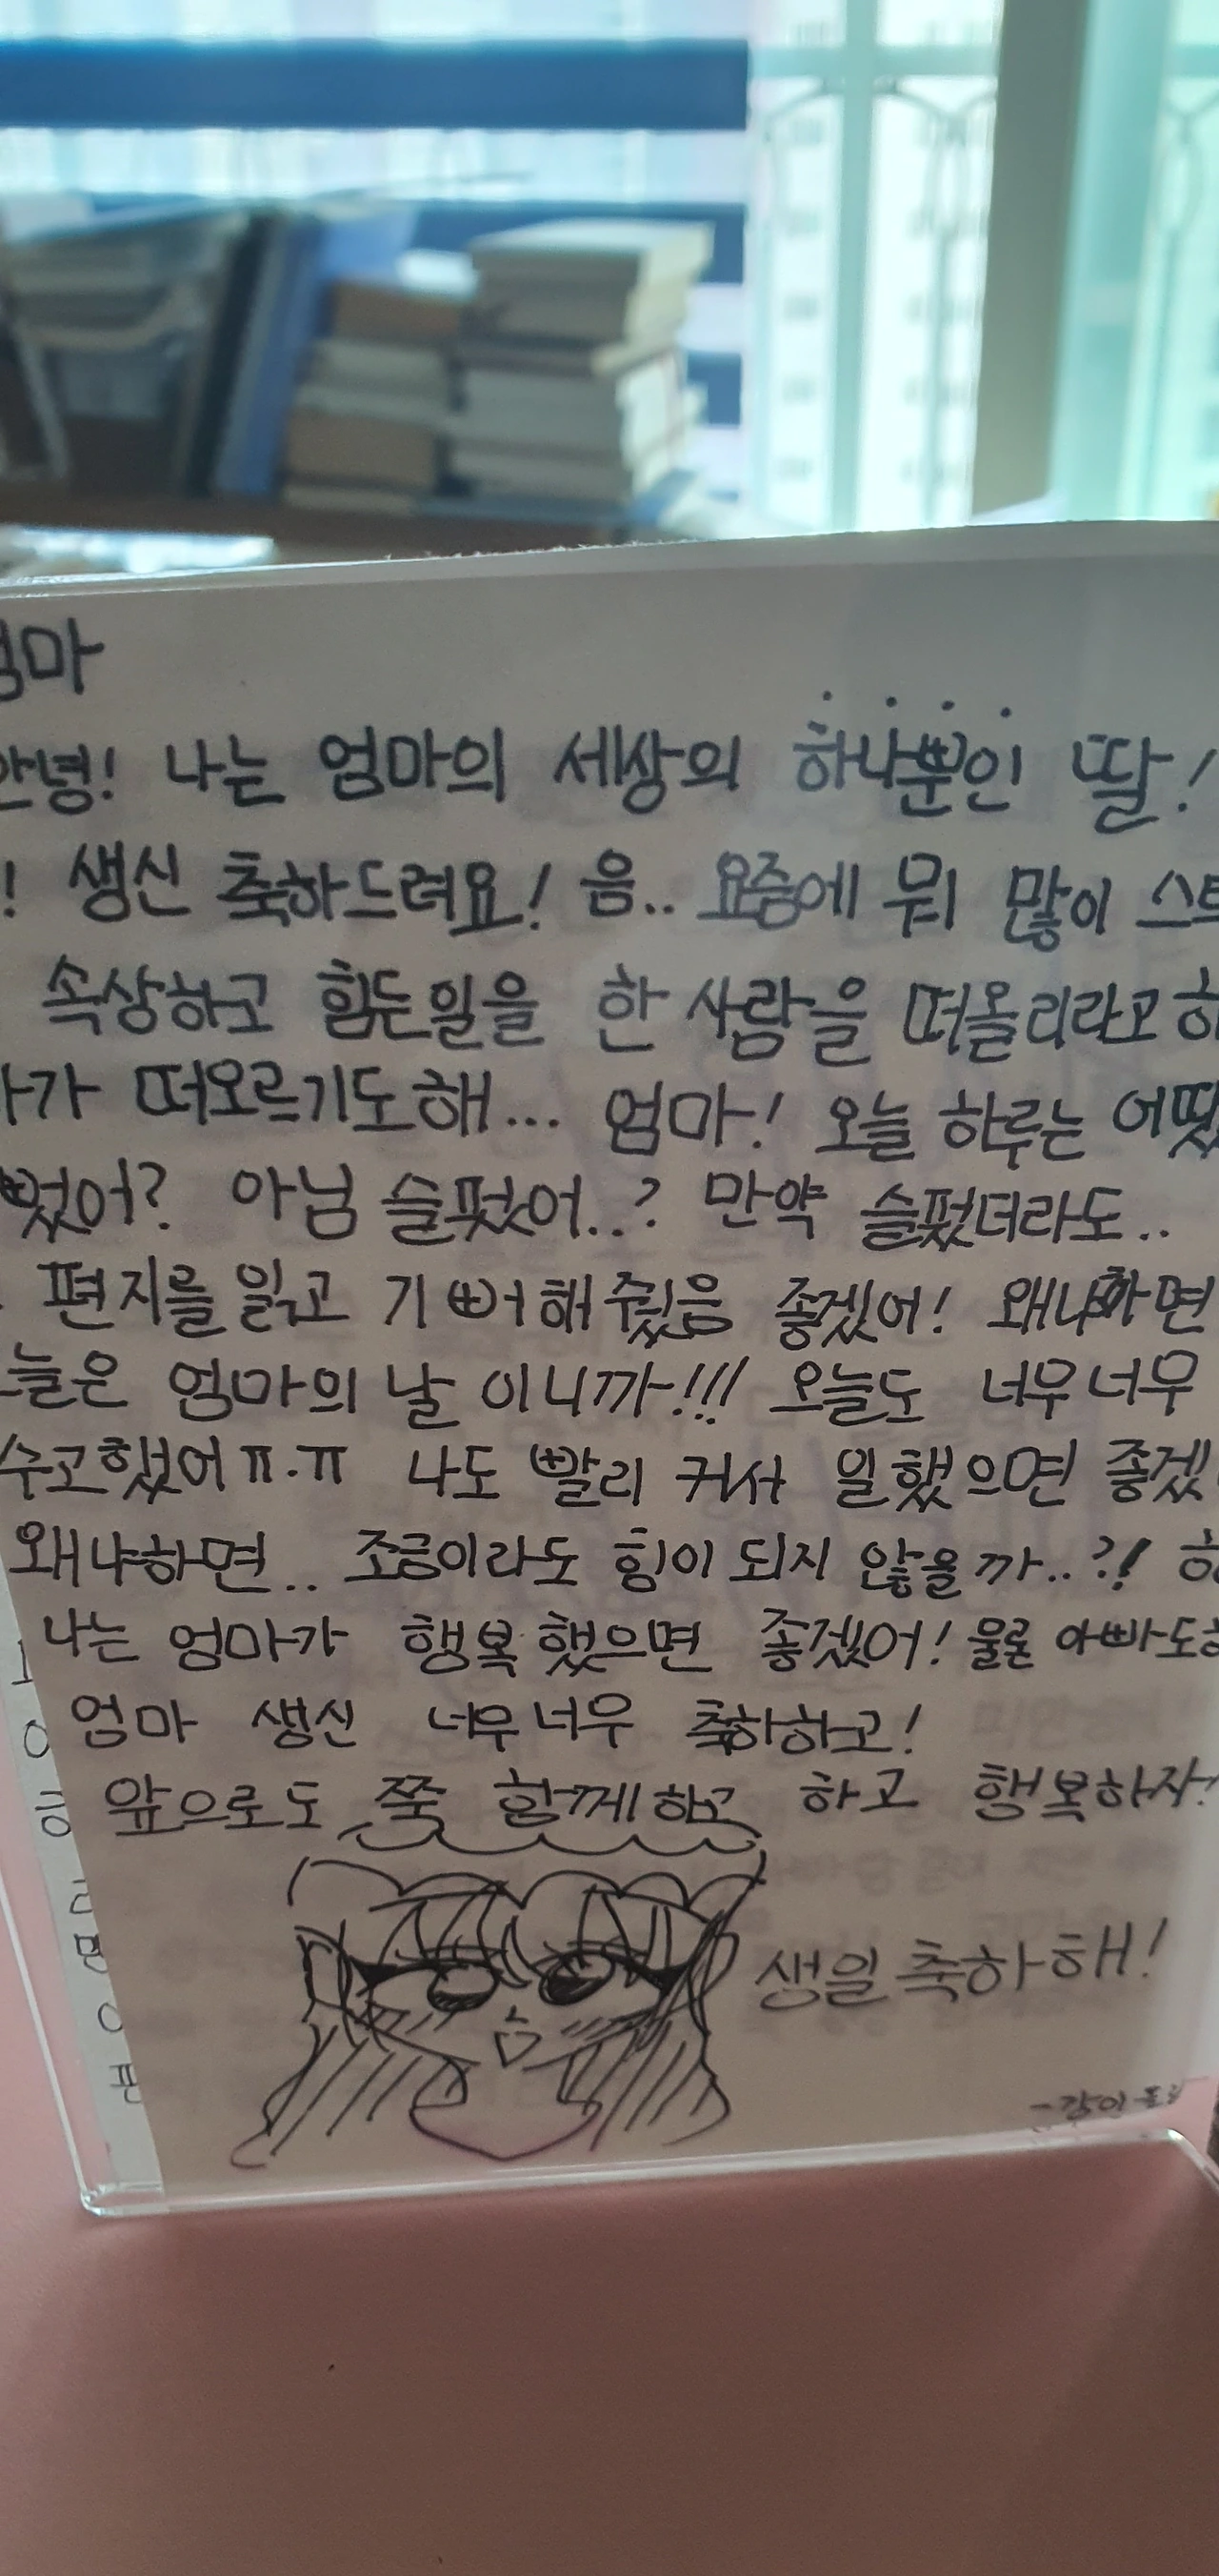 엄마
안녕! 나는 엄마의 세상의 하나뿐인 딸!
! 생신 축하드려요! 음.. 요즘에 뭐 많이 스트
속상하고 힘든일을 한 사람을 떠올리라고 하
가 떠오르기도해... 엄마! 오늘 하루는 어땠
뻤어? 아님 슬펐어..? 만약 슬펐더라도..
편지를 읽고 기뻐해줬음 좋겠어! 왜냐하면
늘은 엄마의 날 이니까!!! 오늘도 너무너무
수고했어ㅠ.ㅠ 나도 빨리 커서 일했으면 좋겠
왜냐하면.. 조금이라도 힘이 되지 않을까..?! 하
나는 엄마가 행복했으면 좋겠어! 물론 아빠도
엄마 생신 너무너무 축하하고!
앞으로도 쭉 함께하고 하고 행복하자!
생일 축하해!